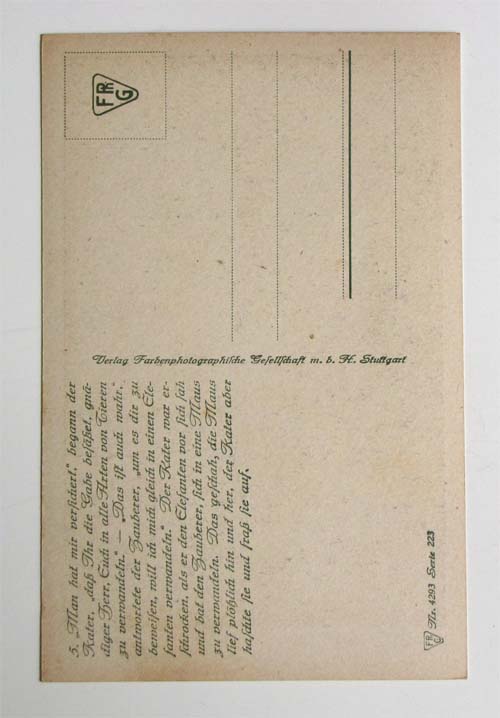 5. „Man hat mir versichert,“ begann der
Kater, „daß Ihr die Gabe besäßet, gnä-
diger Herr, Euch in alle Arten von Tieren
zu verwandeln.“ — „Das ist auch wahr,“
antwortete der Zauberer, „um es dir zu
beweisen, will ich mich gleich in einen Ele-
fanten verwandeln.“ Der Kater war er-
schrocken, als er den Elefanten vor sich sah
und bat den Zauberer, sich in eine Maus
zu verwandeln. Das geschah, die Maus
lief plötzlich hin und her, der Kater aber
haschte sie und fraß sie auf.
FPhG Nr. 4293 Serie 223
Verlag Farbenphotographische Gesellschaft m. b. H. Stuttgart
FPhG